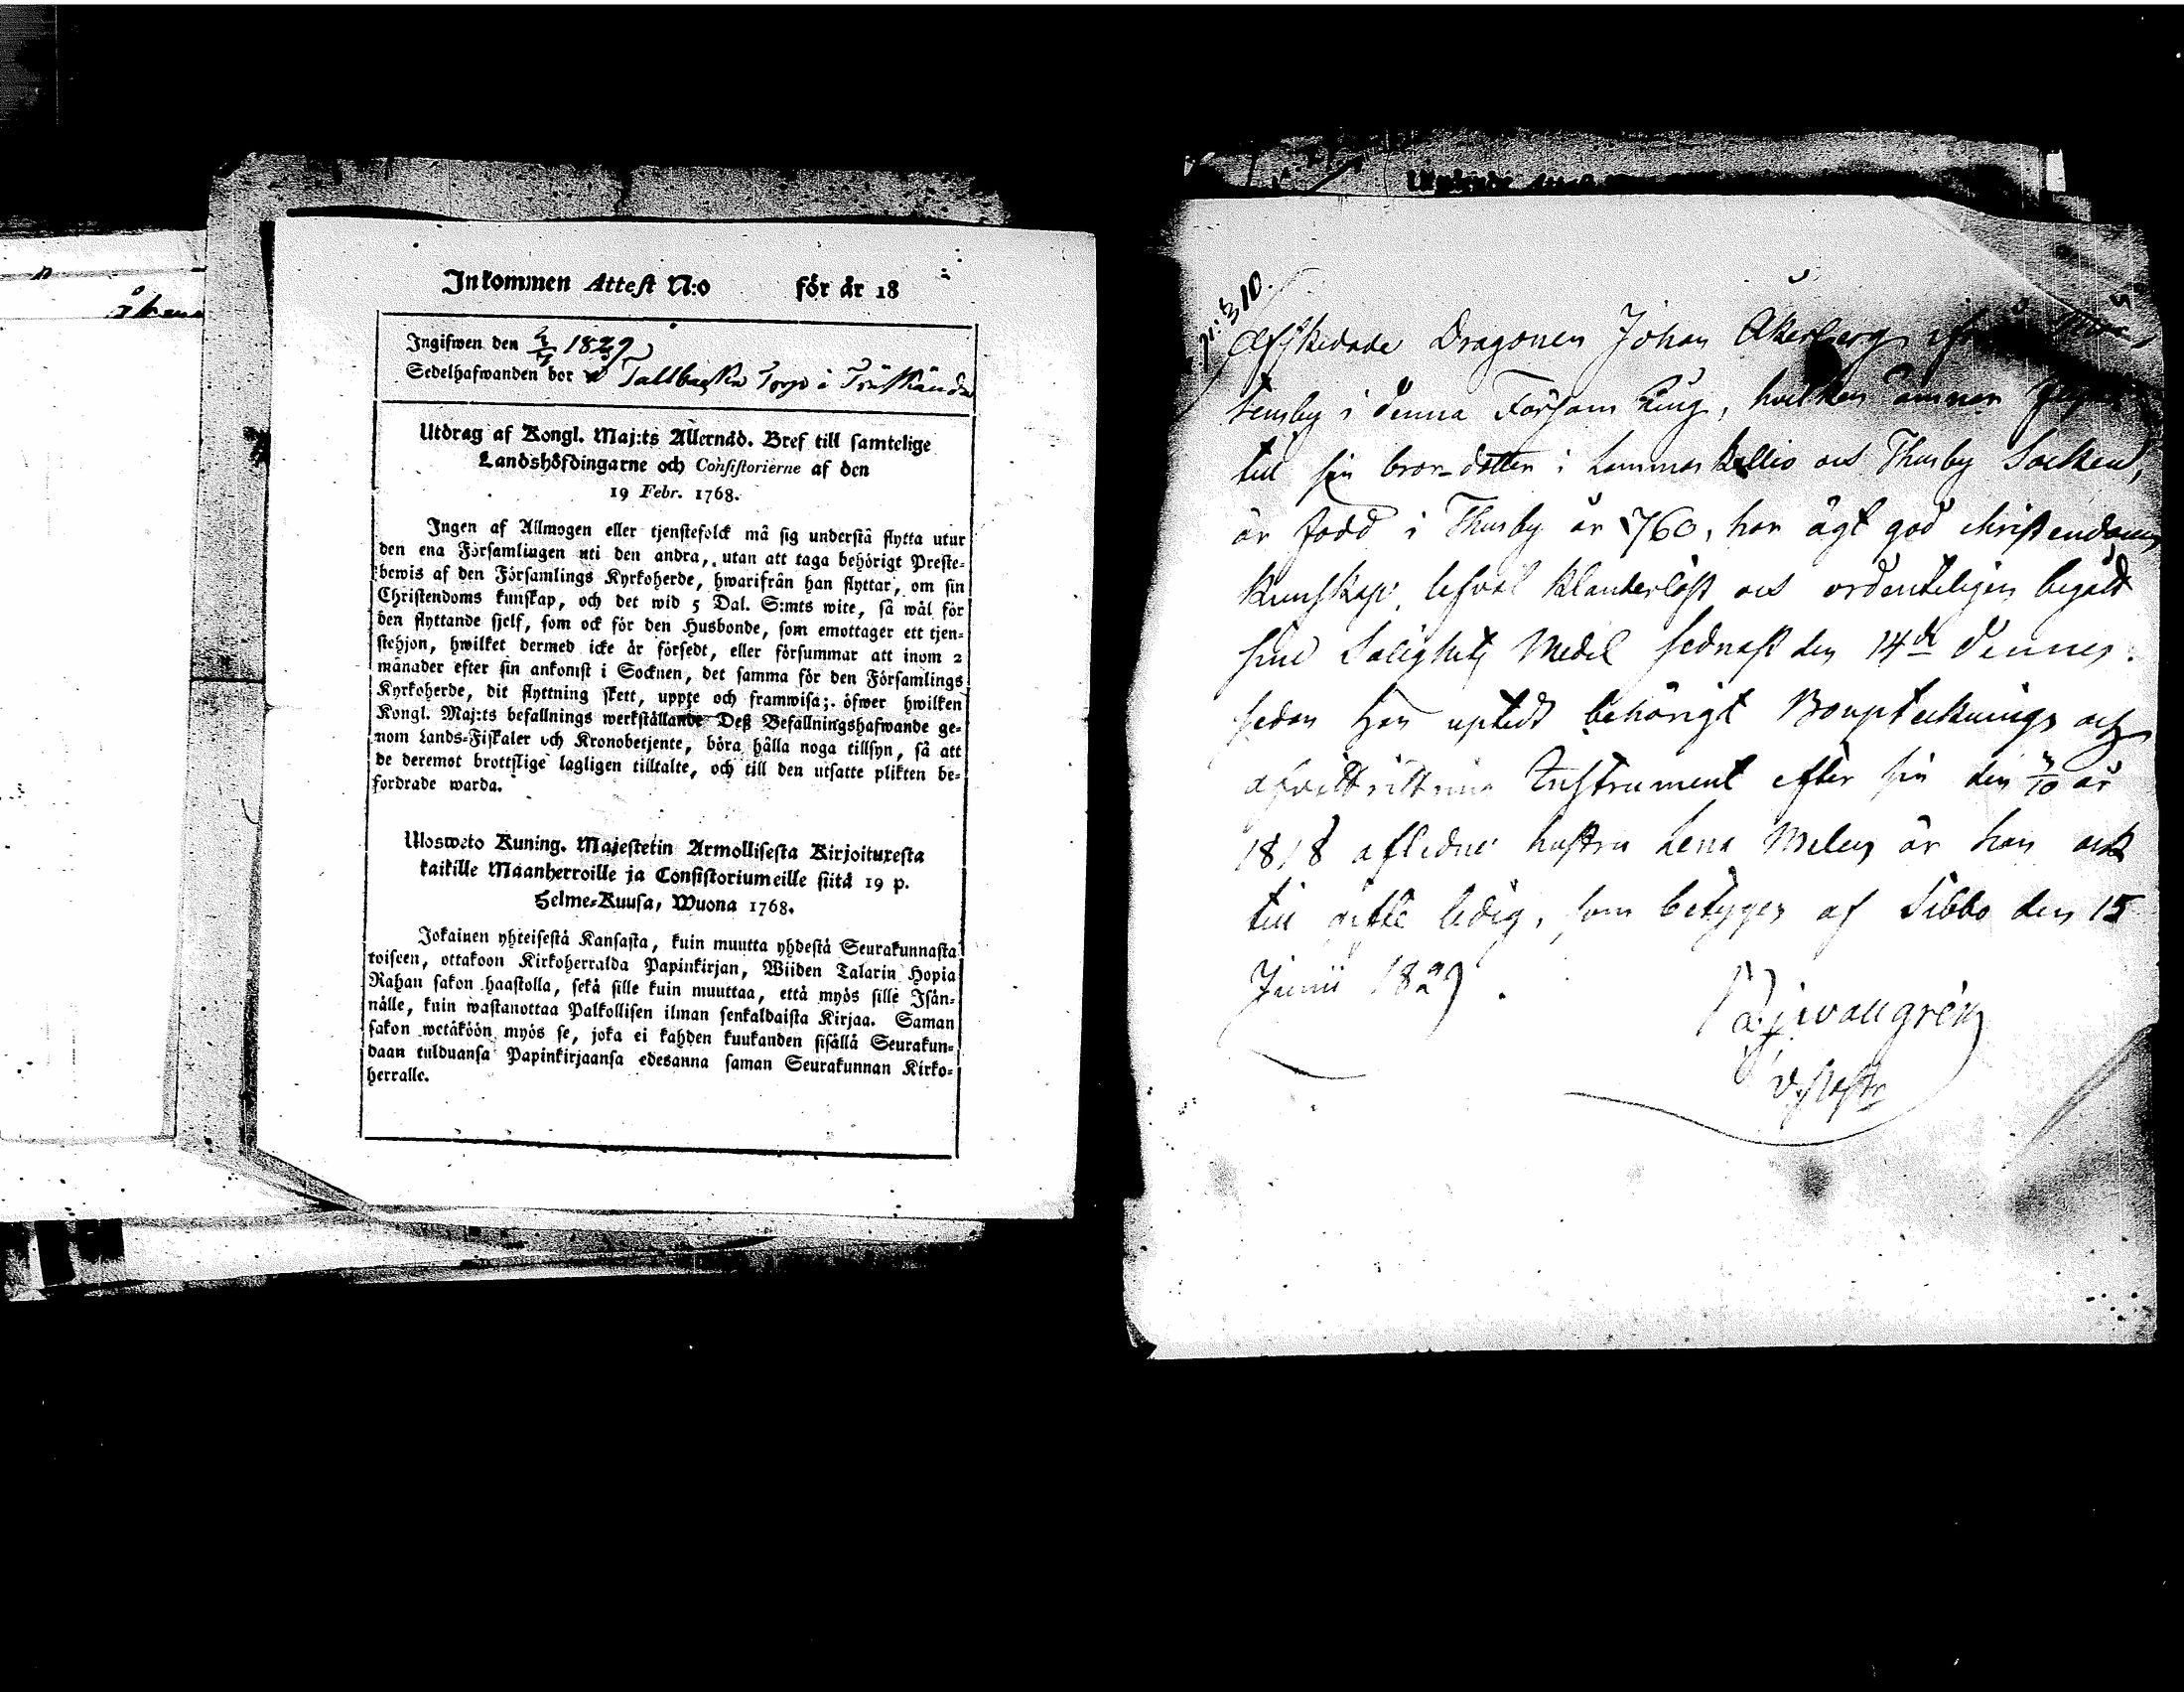 Inkommen Attest N:o för år 18
Ingifwen den 1829
Sedelhafwanden bor Tallbacka Torp i Träskända
Utdrag af Kongl. Maj:ts Allernåd. Bref till samtelige
Landshöfdingarne och Consistorierne af den
19 Febr. 1768.
Ingen af Allmogen eller tjenstefolck må sig understå flytta utur
den ena Församlingen uti den andra, utan att taga behörigt Preste-
bewis af den Församlings Kyrkoherde, hwarifrån han flyttar, om sin
Christendoms kunskap, och det wid 5 Dal. S:mts wite, så wäl för
den flyttande sjelf, som ock för den Husbonde, som emottager ett tjen-
stehjon, hwilket dermed icke är försedt, eller försummar att inom 2
månader efter sin ankomst i Socknen, det samma för den Församlings
Kyrkoherde, dit flyttning skett, uppte och framwisa; öfwer hwilken
Kongl. Maj:ts befallnings werkställande Deß Befallningshafwande ge-
nom Lands-Fiskaler och Kronobetjente, böra hålla noga tillsyn, så att
de deremot brottslige lagligen tilltalte, och till den utsatte plikten be-
fordrade warda.
Ulosweto Kuning. Majestetin Armollisesta Kirjoituxesta
kaikille Maanherroille ja Consistoriumeille siitä 19 p.
Helme-Kuusa, Wuona 1768.
Jokainen yhteisestä Kansasta, kuin muutta yhdestä Seurakunnasta
toiseen, ottakoon Kirkoherralda Papinkirjan, Wiiden Talarin Hopia
Rahan sakon haastolla, sekä sille kuin muuttaa, että myös sille Isän-
nälle, kuin wastanottaa Palkollisen ilman senkaldaista Kirjaa. Saman
sakon wetäköön myös se, joka ei kahden kuukanden sisällä Seurakun-
daan tulduansa Papinkirjaansa edesanna saman Seurakunnan Kirko-
herralle.
N: 310.
Afskedade Dragonen Johan Åkerberg ifrån
temsby i denna Församling, hvilken ämnar
till sin brorsdotter i Lammaskallio och Thusby Socken,
är född i Thusby år 1760, har ägt god christendoms
kunskap, lefvat klanderlöst och ordenteligen begått
sine Salighets Medel sednast den 14de dennes.
sedan han uptedt behörigt Bouptecknings och
afvittrings Instrument efter sin den år
1818 aflidne hustru Lena Melen är han ock
till gifte ledig, som betyges af Sibbo den 15
Junii 1829.